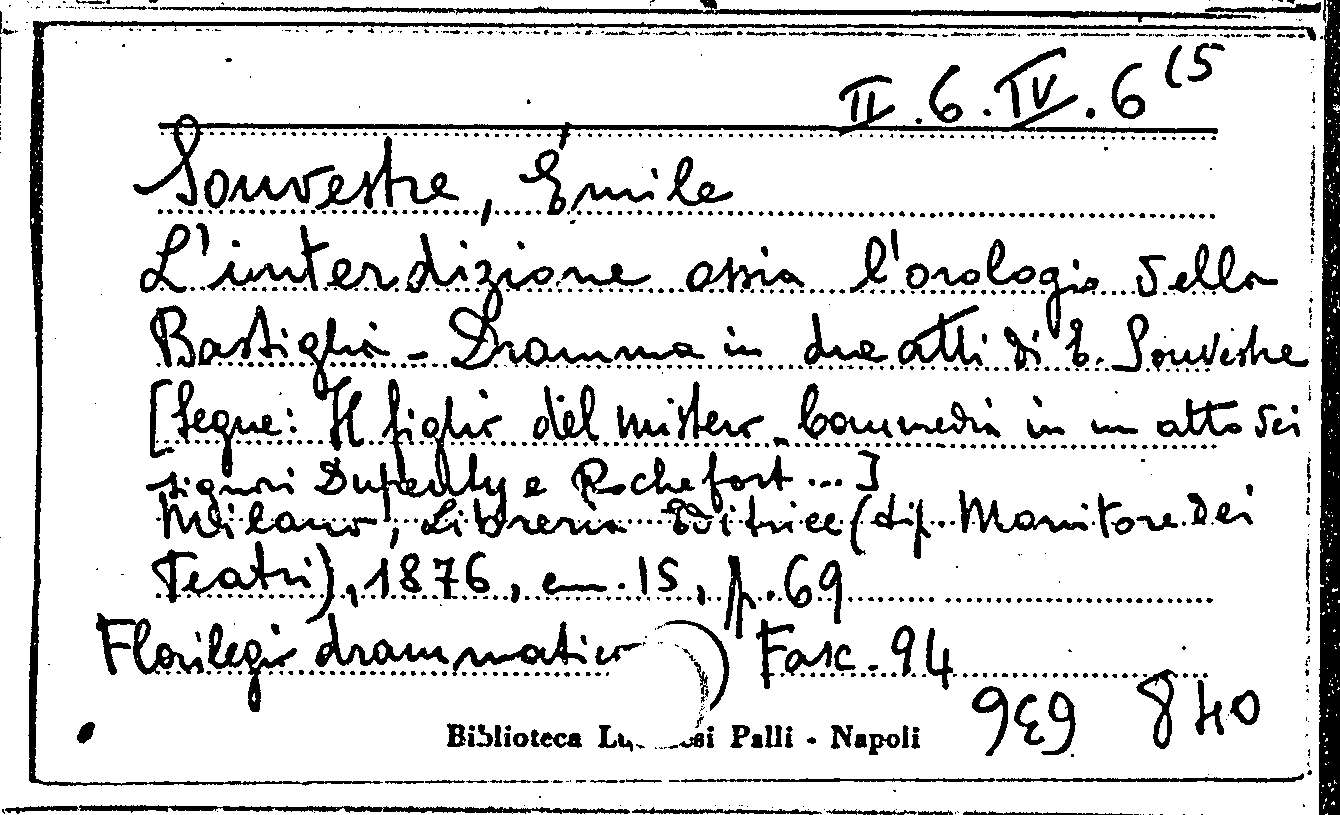 II.6.IV.6(5
Souvestre, Émile
L'interdizione ossia l'orologio della
Bastiglia - Dramma in due atti di E. Souvestre
[Segue: Il figlio del mistero - Commedia in un atto dei
signori Dupeuty e Rochefort...]
Milano, Libreria Editrice (tip. Monitore dei
Teatri), 1876, cm. 15, p. 69
Florilegio drammatico Fasc. 94
939 840
Biblioteca Lu si Palli - Napoli